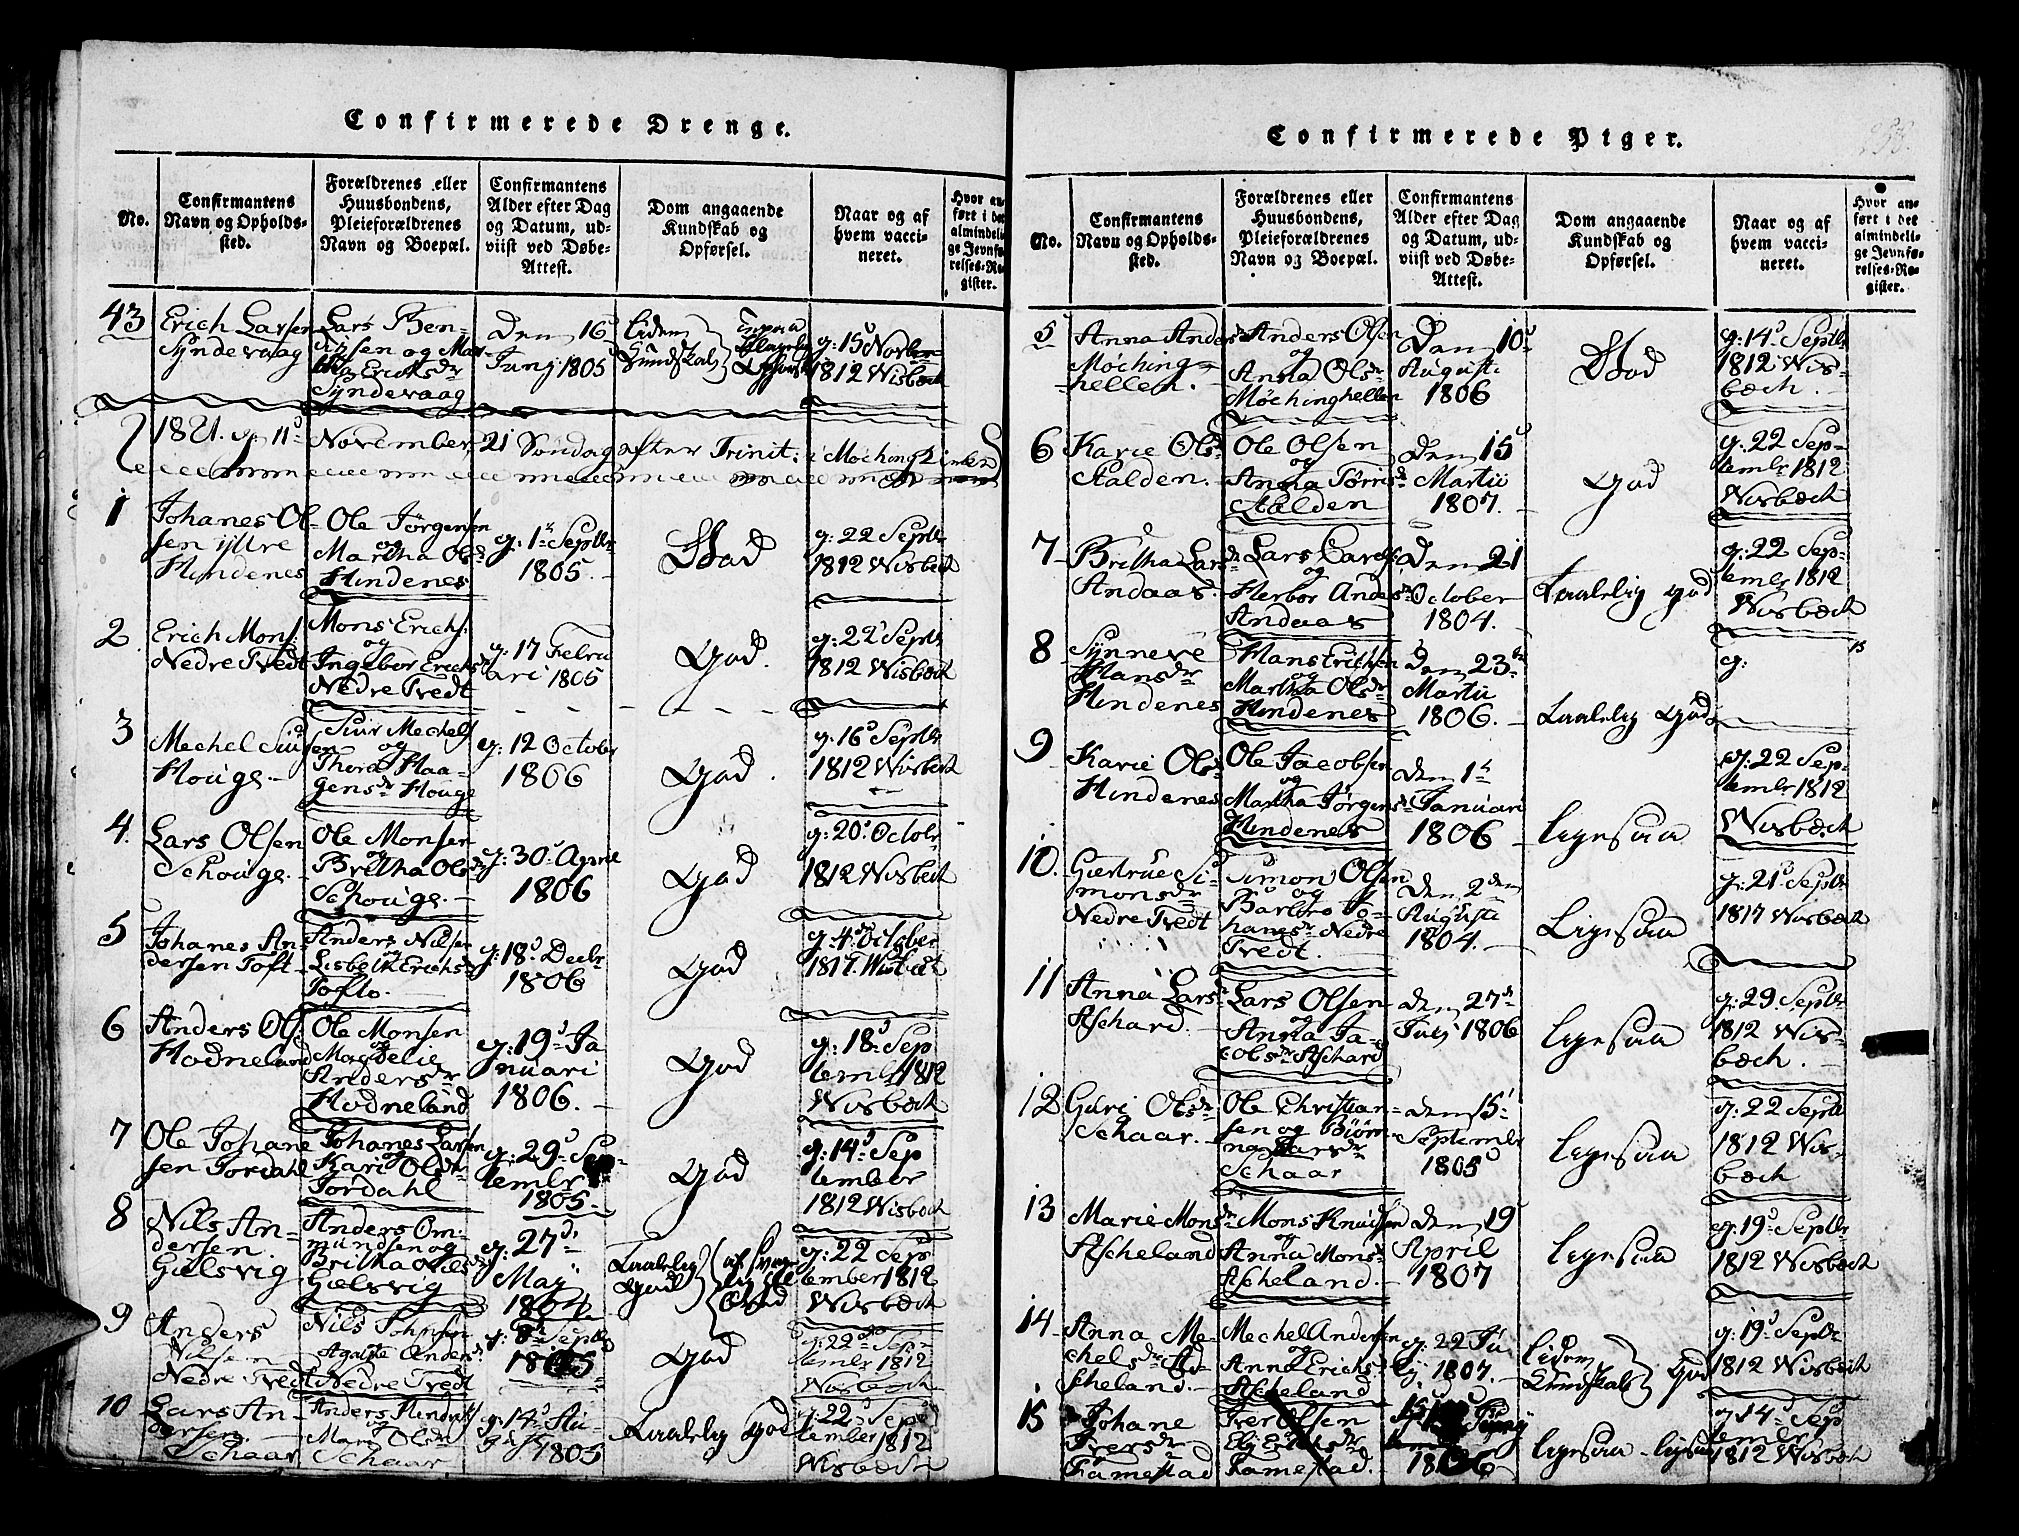 Confirmerede Drenge.
No.
Confirmantens
Navn og Opholds-
sted.
Forældrenes eller
Huusbondens,
Pleieforældrenes
Navn og Boepæl.
Confirmantens
Alder efter Dag
og Datum, ud-
viist ved Døbe-
Attest.
Dom angaaende
Kundskab og
Opførsel.
Naar og af
hvem vacci-
neret.
Hvor an-
ført i det
almindeli-
ge Jevnfø-
relses-Re-
gister.
43
Erich Larsen
Syndevaag
Lars Ben-
og Mar-
tha Erichsdr
Syndevaag
Den 16
Junj 1805
Liden
Kundskab
g: 15 Novbr
1812 Wisbech
1821. g: 11 November, 21 Søndag efter Trinit: i
1
Johanes Ol-
sen ijttre
Hindenes
Ole Jørgensen
og
Martha Olsdr
Hindenes
g: 1 Septbr
1805.
God
g: 22 Septbr
1812 Wisbech
2
Erich Mons:
Nedre Tvedt
Mons Erichs:
og
Ingebor Erichsdr
Nedre Tvedt
g: 17 Febru
ari 1805
God.
g: 22 Septbr
1812 Wisbech
3
Mechel Siur-
sen
Houge
Siur Mechels
og
Thora Haa-
gensdr Houge
g: 12 Octobr
1806
God.
g: 16 Septbr
1812 Wisbech
4.
Lars Olsen
Schouge.
Ole Monsen
og
Britha Olsdr
Schouge.
g: 30 April
1806
God
g: 20 Octobr
1812 Wisbech
5
Johanes An-
dersen Toft
Anders Nilsen
og
Lisbeth Erichsdr
Tofto.
g: 18 Decbr
1806
God
g: 4 October
1817. Wisbech
6
Anders Ols:
Hodneland
Ole Monsen
og
Magdelie
Andersdr
Hodneland
g: 19 Ja
nuari
1806.
God
g: 18 Sep
tembr 1812
Wisbech
7
Ole Johane
sen Tordahl
Johanes Larsen
og
Kari Olsdr
Tordahl
g: 29 Sep-
tembr
1805.
God
g: 14 Sep
tember
1812 Wisbech
8
Nils An-
dersen.
Gielsvig
Anders Om-
mundsen og
Britha Nilsdr
Gielsvig
g: 27
Maj
1804
Taalelig
God
g: 22 Sep
tember 1812
Wisbech
9
Anders
Nilsen
Nedre Tvedt
Nils Johnsen
Agathe Andersdr
Nedre Tvedt
g: 8 Septbr
1805
God
g: 22 Sep-
tembr 1812
Wisbech
10
Lars An-
dersen.
Schaar
Anders Hendrichs
og
Mari Olsdr
Schaar
g: 14 Au-
gust 1805
Taalelig God
g: 22 Sep
tember 1812
Wisbech
Confirmerede Piger.
258.
No.
Confirmantens
Navn og Opholds-
sted.
Forældrenes eller
Huusbondens,
Pleieforældrenes
Navn og Boepæl.
Confirmantens
Alder efter Dag
og Datum, ud-
viist ved Døbe-
Attest.
Dom angaaende
Kundskab og
Opførsel.
Naar og af
hvem vacci-
neret.
Hvor an-
ført i det
almindeli-
ge Jevnfø-
relses-Re-
gister.
5
Anna Andersdr
Møching-
hellen.
Anders Olsen
og
Anna Olsdr
Møchinghellen
Den 10
Augusti
1806
God
g: 14 Septbr
1812 Wis-
bech.
6
Karie Olsdr
Aalden.
Ole Olsen
og
Anna Tørrisdr
Aalden
Den 15
Martii
1807.
God
g: 22 Sep-
tembr 1812
Wisbech
7
Britha Larsdr
Andaas.
Lars Larsen
og
Herbor Andersdr
Andaas
Den 21
October
1804.
Taalelig God
g: 22 Sep-
tembr 1812
Wisbech
8
Synneve
Hansdr
Hindenes
Hans Erichsen
og
Martha Olsdr
Hindenes
Den 23
Martii
1806.
Taalelig God
g:
9
Karie Olsdr
Hindenes
Ole Jacobsen
og
Martha Jørgensdr
Hindenes
den 1
Januari
1806
ligesaa
g: 22 Sep-
tembr 1812
Wisbech
10.
Giertrue Si-
monsdr
Nedre Tvedt
Simon Olsen
og
Barbro Jo-
hansdr Nedre
Tvedt.
den 2den
Augusti
1804.
Ligesaa
g: 21 Septbr
1817 Wisbech
11
Anna Larsdr
Aschard.
Lars Olsen
og
Anna Ja-
cobsdr Aschard
den 27
Julj 1806
ligesaa
g: 29 Septbr
1812 Wis-
bech.
12
Guri Olsdr
Schaar.
Ole Christian-
sen og Biørn-
Larsdr
Schaar
den 15
Septembr
1805
ligesaa
g: 22 Septbr
1812 Wis-
bech
13
Marie Monsdr
Ascheland
Mons Knudsen
og
Anna Monsdr
Ascheland.
den 19
April
1807
ligesaa
g: 19 Septbr
1812 Wisbech
14
Anna Me-
chelsdr As-
cheland.
Mechel Andersen
og
Anna Erichsdr
Ascheland
g: 22 Ju
lij 1807.
Liden
Kundskab
God
g: 19 Septbr
1812 Wisbech
15
Johane
Iversdr
Famestad
Iver Olsen
Elj Erichsdr
Famestad.
1806
ligesaa - ligesaa
g: 14 Sep
tembr
1812 Wisbech